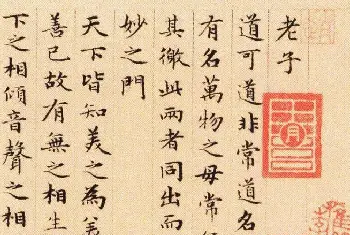 老子
道可道非常道名
有名萬物之母常
其徼此兩者同出而
妙之門
天下皆知美之為美
善已故有無之相生
下之相傾音聲之相